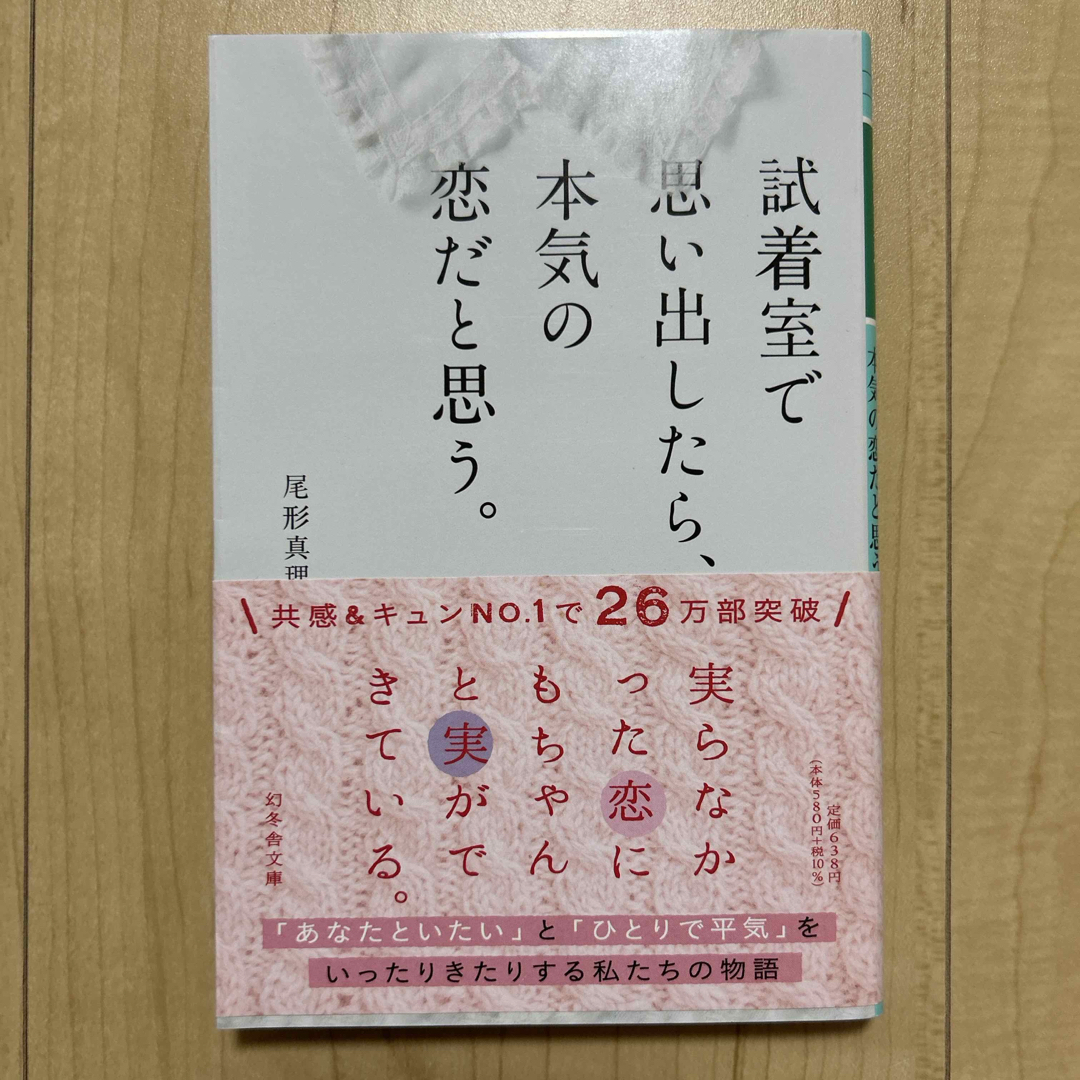 試着室で
思い出したら、
本気の
恋だと思う。
尾形真理
共感&キュンNO.1で26万部突破
実らなか
った恋に
もちゃん
と実がで
きている。
定価638円
(本体580円+税10%)
幻冬舎文庫
「あなたといたい」と「ひとりで平気」を
いったりきたりする私たちの物語
本気の恋だと思う